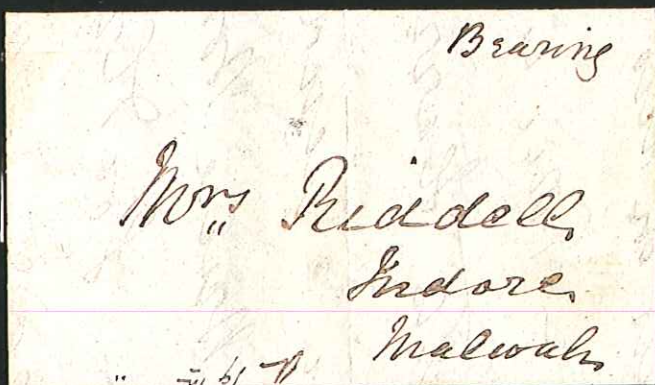 Bearing
Mrs Riddell
Indore
Malwah